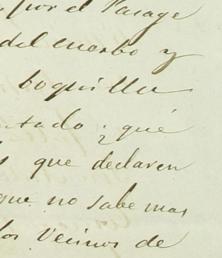 por el Parage
del cuerbo y
boquilla
ntado; qué
que declaren
que no sabe mas
los Vecinos de